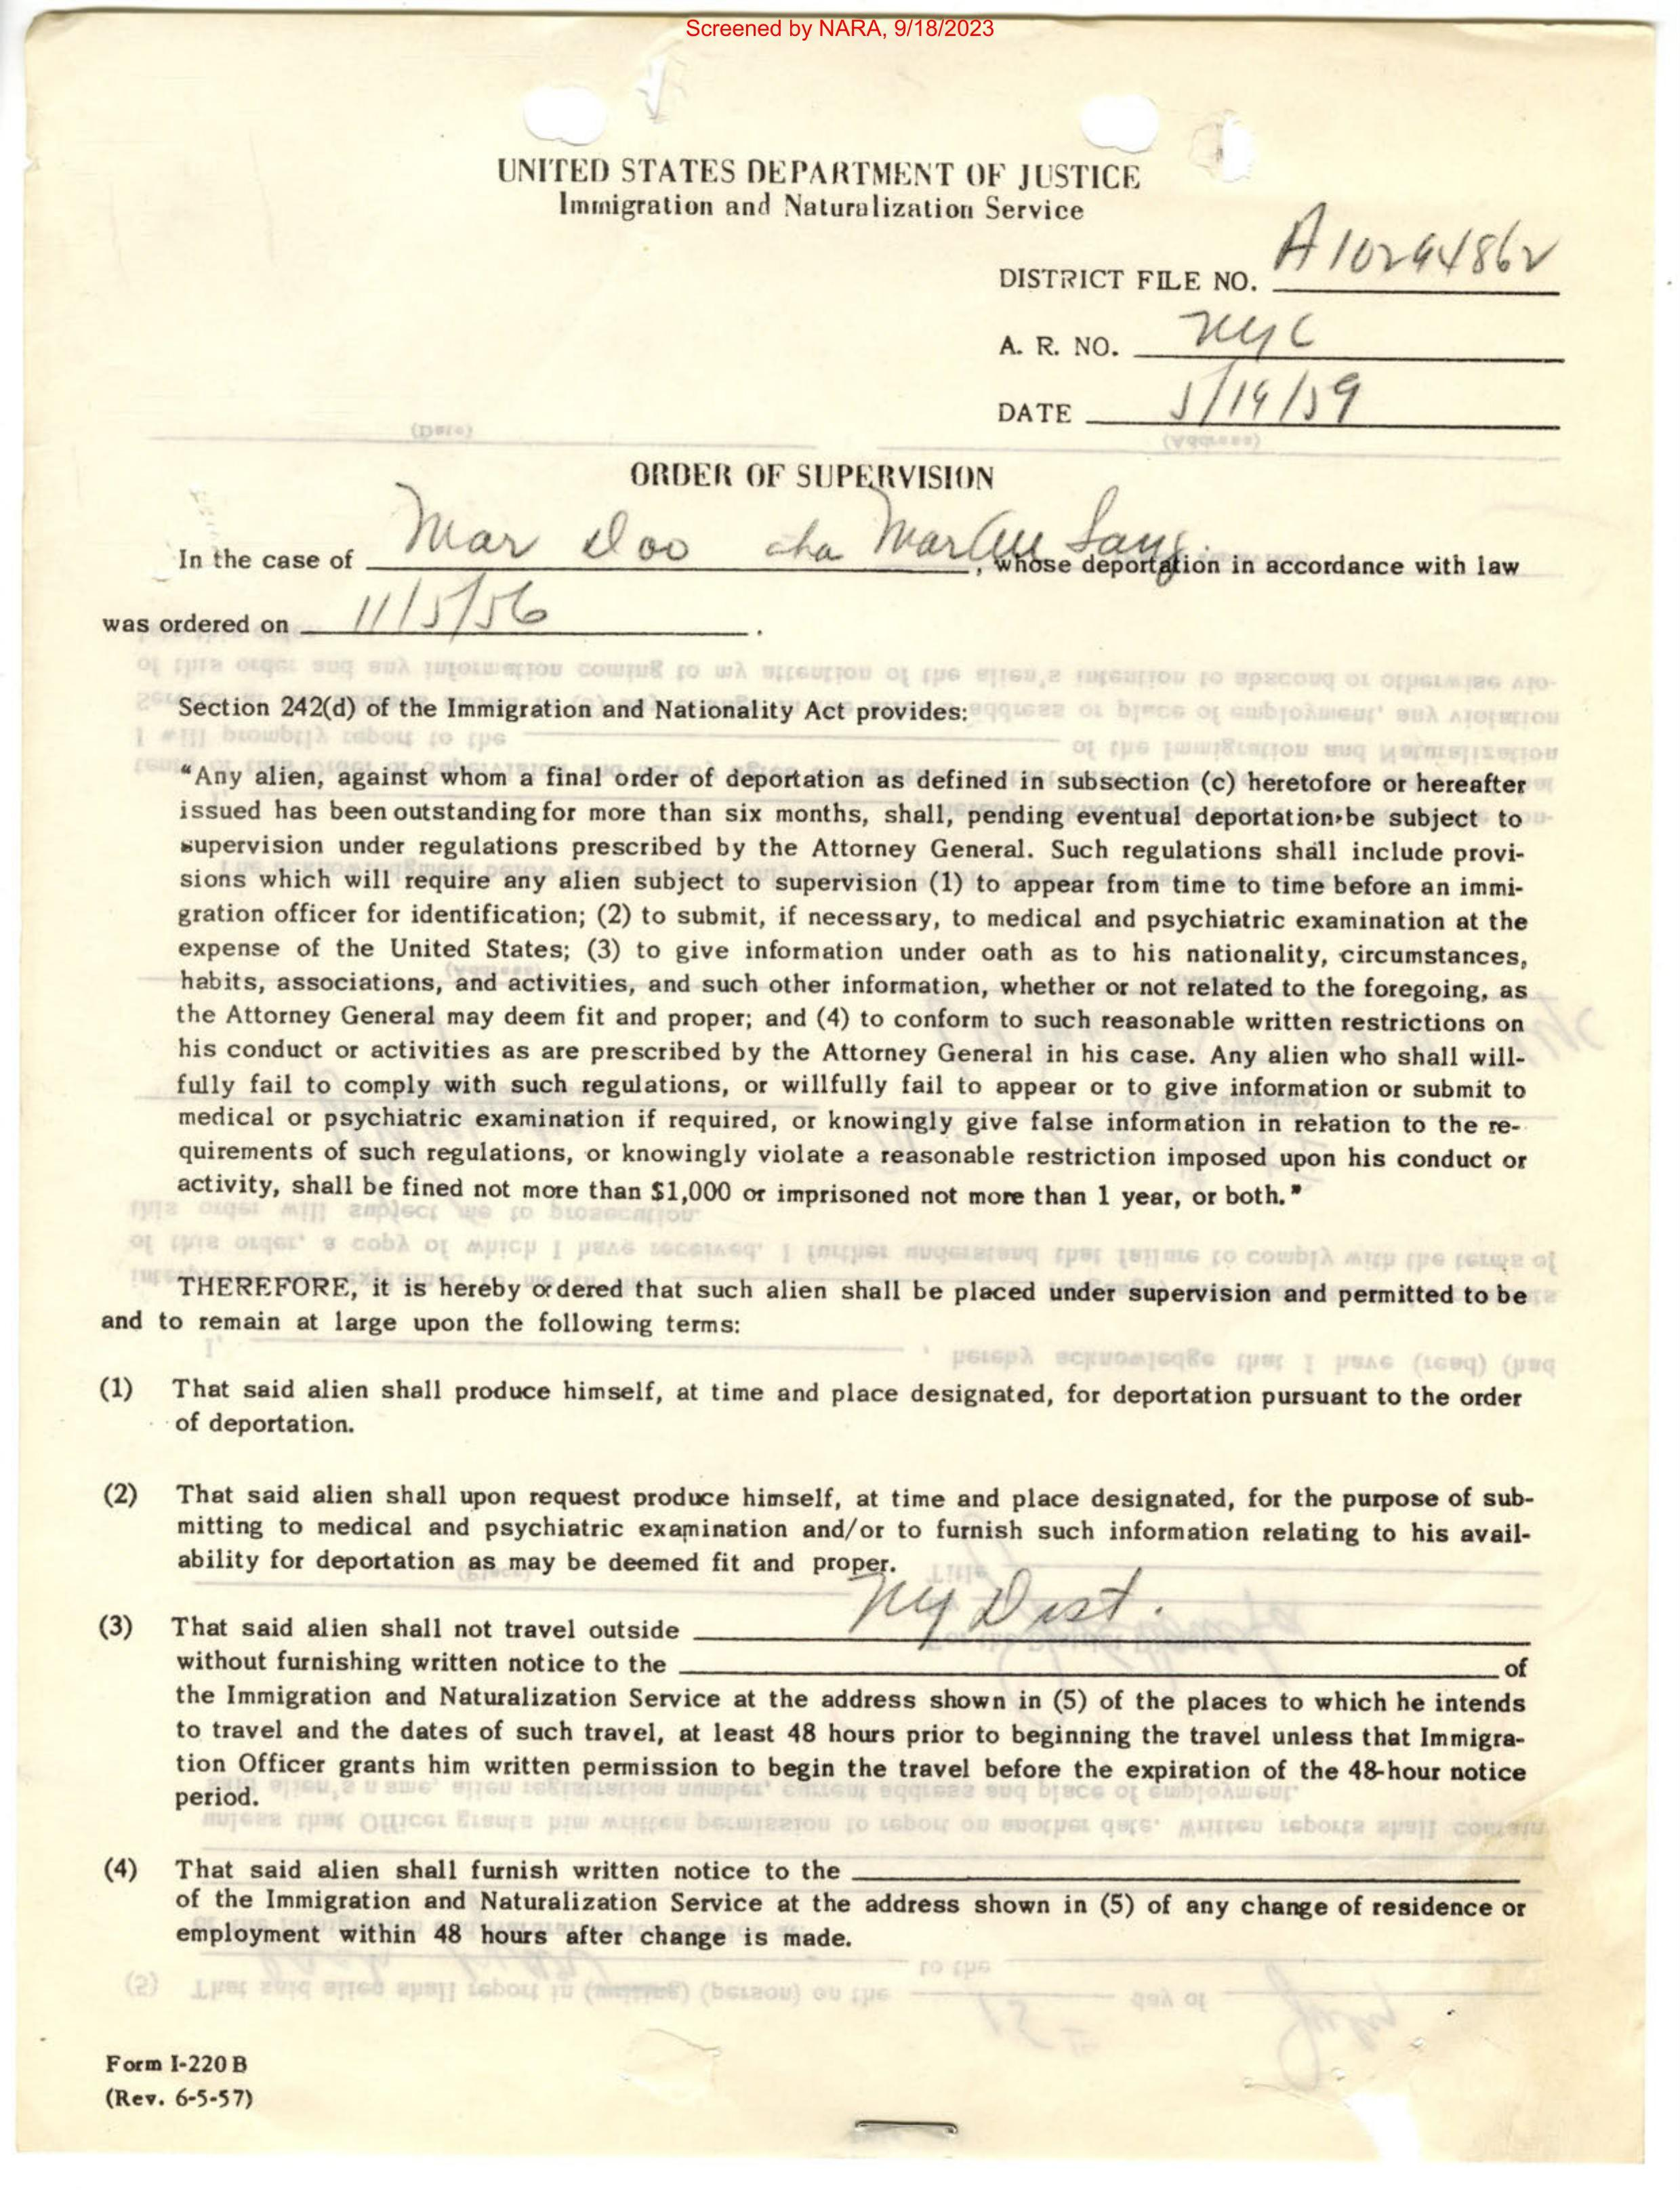 Screened by NARA, 9/18/2023
UNITED STATES DEPARTMENT OF JUSTICE
Immigration and Naturalization Service
DISTRICT FILE NO. A10294862
A. R. NO. NYC
DATE 5/19/59
(Date) (Address)
ORDER OF SUPERVISION
In the case of Mar Doo aka Mar Sang, whose deportation in accordance with law
was ordered on 11/5/56.
Section 242(d) of the Immigration and Nationality Act provides:
"Any alien, against whom a final order of deportation as defined in subsection (c) heretofore or hereafter
issued has been outstanding for more than six months, shall, pending eventual deportation, be subject to
supervision under regulations prescribed by the Attorney General. Such regulations shall include provi-
sions which will require any alien subject to supervision (1) to appear from time to time before an immi-
gration officer for identification; (2) to submit, if necessary, to medical and psychiatric examination at the
expense of the United States; (3) to give information under oath as to his nationality, circumstances,
habits, associations, and activities, and such other information, whether or not related to the foregoing, as
the Attorney General may deem fit and proper; and (4) to conform to such reasonable written restrictions on
his conduct or activities as are prescribed by the Attorney General in his case. Any alien who shall will-
fully fail to comply with such regulations, or willfully fail to appear or to give information or submit to
medical or psychiatric examination if required, or knowingly give false information in relation to the re-
quirements of such regulations, or knowingly violate a reasonable restriction imposed upon his conduct or
activity, shall be fined not more than $1,000 or imprisoned not more than 1 year, or both."
THEREFORE, it is hereby ordered that such alien shall be placed under supervision and permitted to be
and to remain at large upon the following terms:
(1) That said alien shall produce himself, at time and place designated, for deportation pursuant to the order
of deportation.
(2) That said alien shall upon request produce himself, at time and place designated, for the purpose of sub-
mitting to medical and psychiatric examination and/or to furnish such information relating to his avail-
ability for deportation as may be deemed fit and proper.
(3) That said alien shall not travel outside NY Dist.
without furnishing written notice to the of
the Immigration and Naturalization Service at the address shown in (5) of the places to which he intends
to travel and the dates of such travel, at least 48 hours prior to beginning the travel unless that Immigra-
tion Officer grants him written permission to begin the travel before the expiration of the 48-hour notice
period.
(4) That said alien shall furnish written notice to the
of the Immigration and Naturalization Service at the address shown in (5) of any change of residence or
employment within 48 hours after change is made.
Form I-220 B
(Rev. 6-5-57)